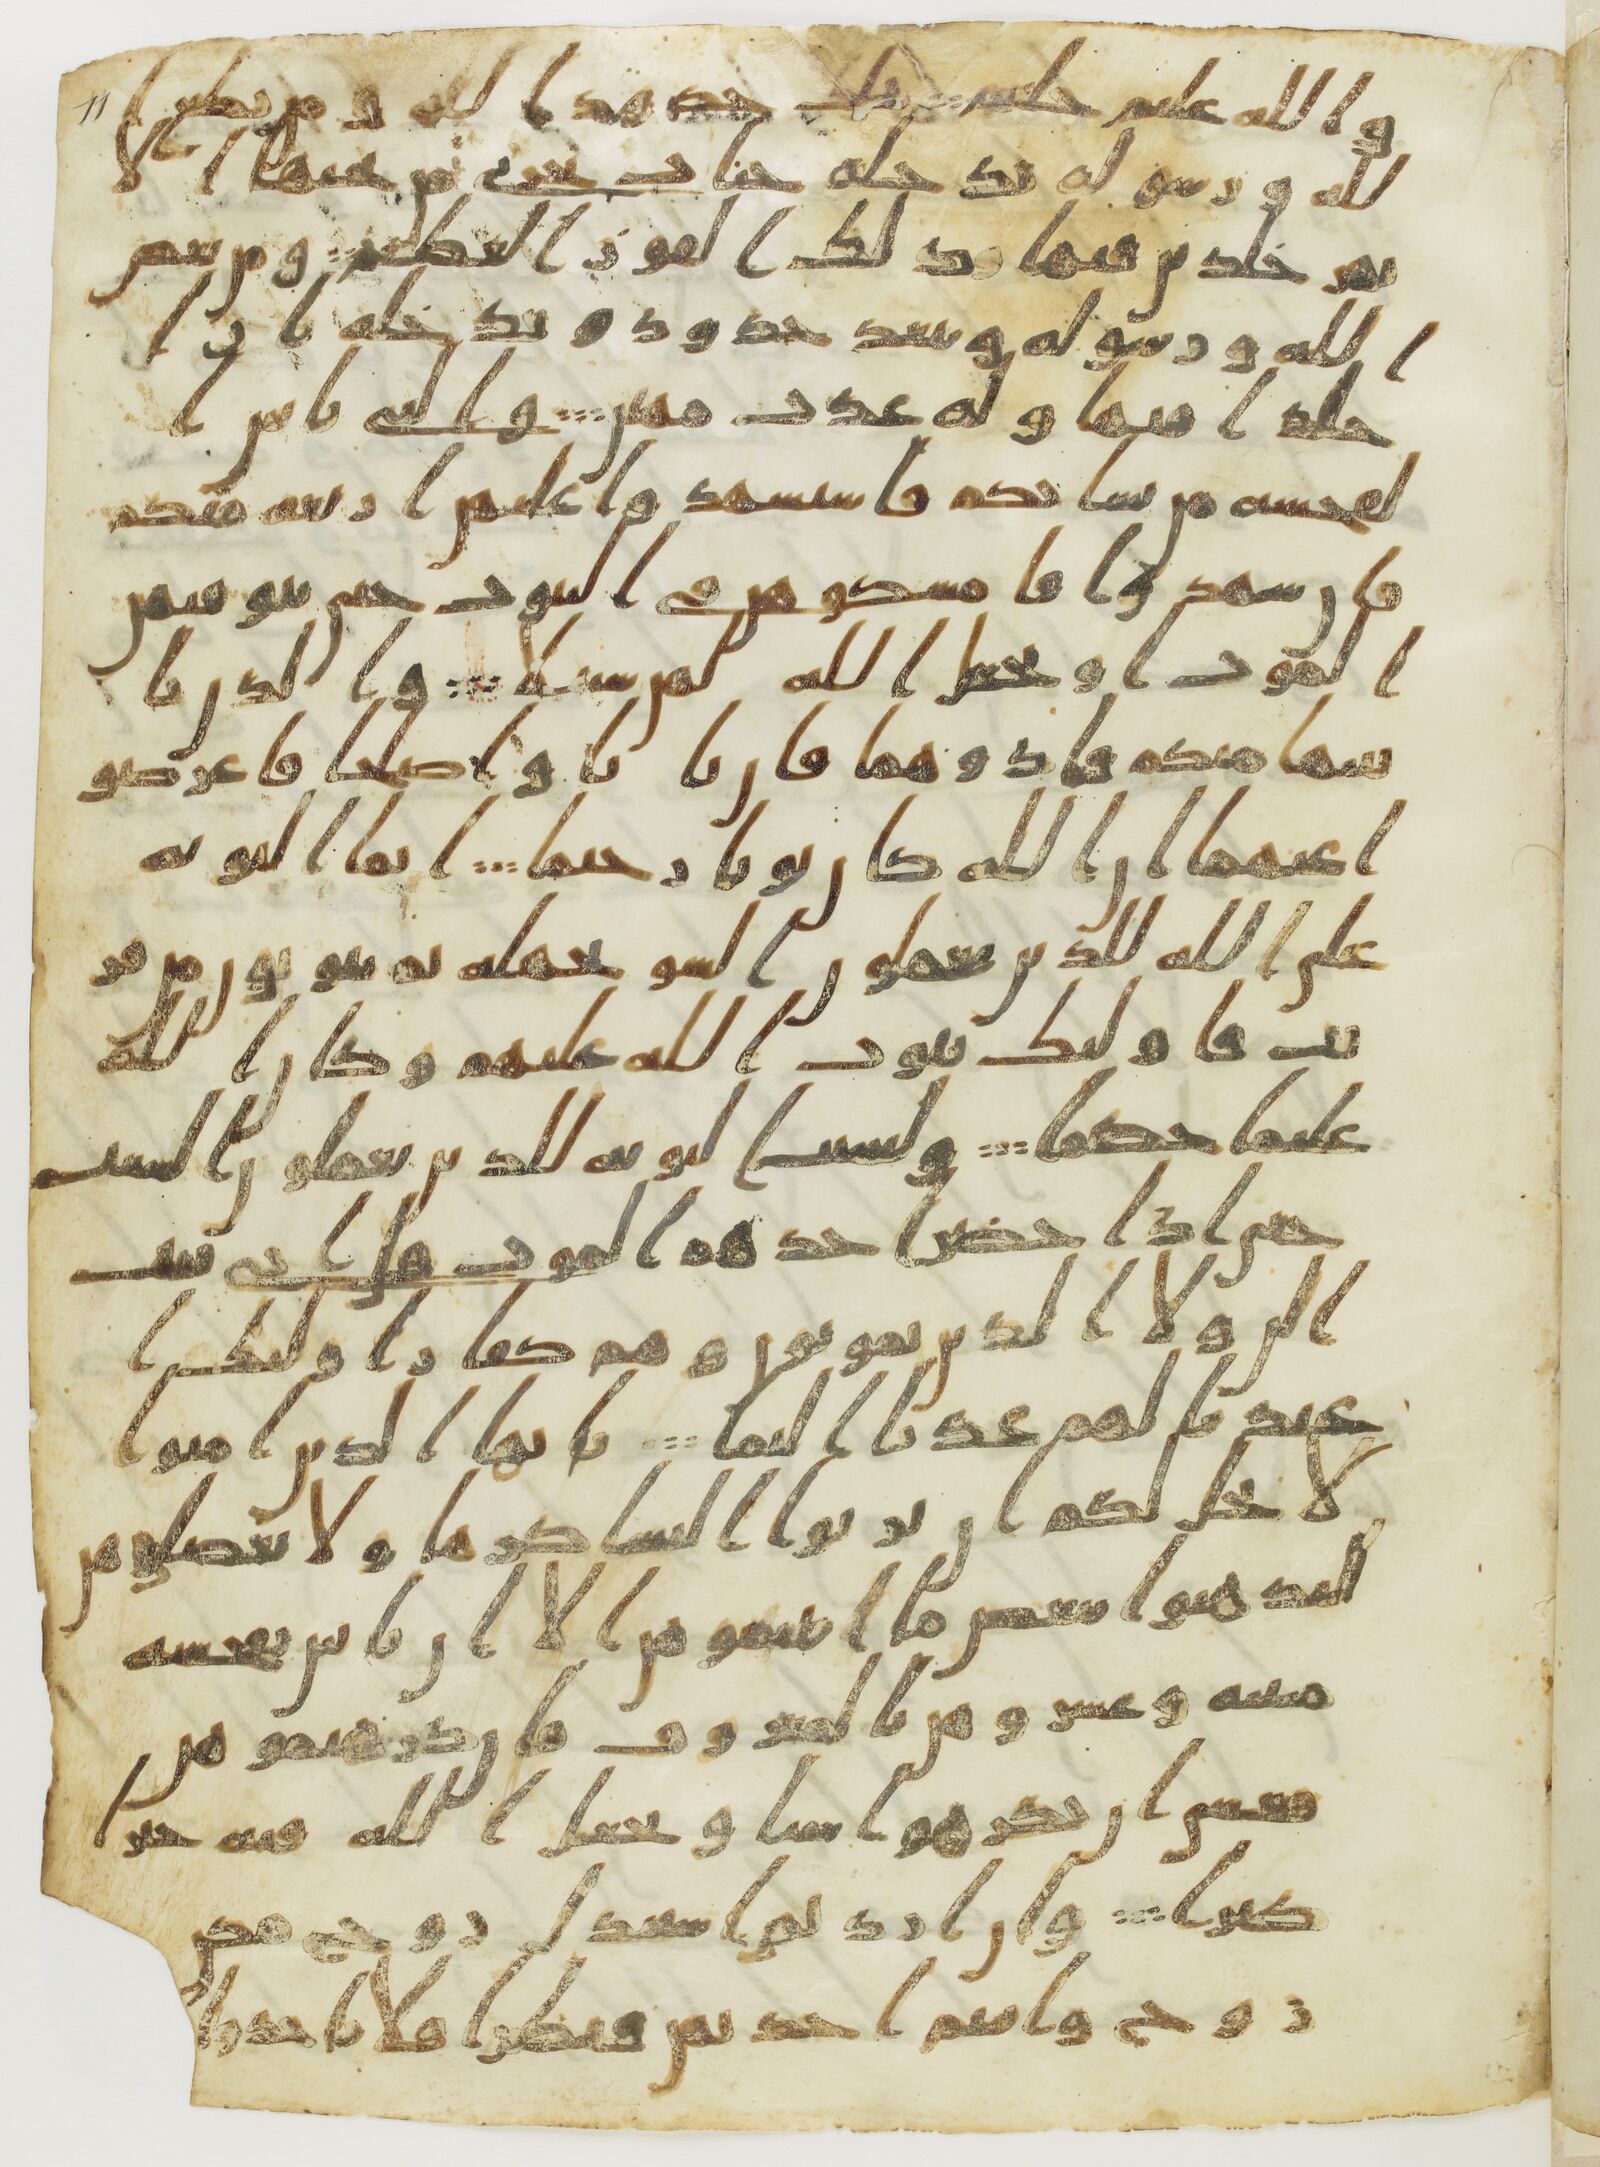 والله عليم حليم ... تلك حدود الله ومن يطع ا
لله ورسوله يدخله جنات تجري من تحتها الا
نهر خلدين فيها وذلك الفوز العظيم ... ومن يعص
الله ورسوله ويتعد حدوده يدخله نارا
خلدا فيها وله عذب مهين ... والتي ياتين ا
لفحشة من نسائكم فاستشهدوا عليهن اربعة منكم
فان شهدوا فامسكوهن في البيوت حتى يتوفهن
الموت او يجعل الله لهن سبيلا ... والذن يا
تينها منكم فاذوهما فان تابا واصلحا فاعرضو
ا عنهما ان الله كان توابا رحيما ... انما التوبة
على الله للذين يعملون السو بجهلة ثم يتوبون من قر
يب فاوليك يتوب الله عليهم وكان الله
عليما حكيما ... وليست التوبة للذين يعملون السيت
حتى اذا حضر احدهم الموت قال اني تبت
الن ولا الذين يموتون وهم كفار اوليك ا
عتدنا لهم عذبا اليما ... يايها الذين امنوا
لا يحل لكم ان ترثوا النسا كرها ولا تعضلوهن
لتذهبوا ببعض ما اتيتموهن الا ان ياتين بفحشة
مبينة وعشروهن بالمعروف فان كرهتموهن
فعسى ان تكرهوا شيا ويجعل الله فيه خيرا
كثيرا ... وان اردتم استبدل زوج مكن
زوج واتيتم احديهن قنطرا فلا تاخذوا